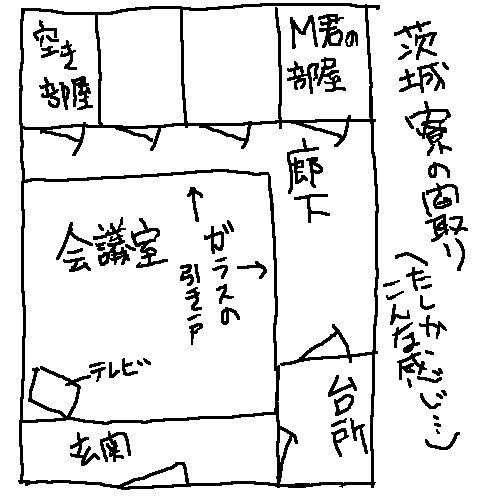 茨城寮の間取り
(たしか、
こんな感じ…)
空き
部屋
M君の
部屋
廊下
会議室
ガラスの
引き戸
テレビ
台所
玄関